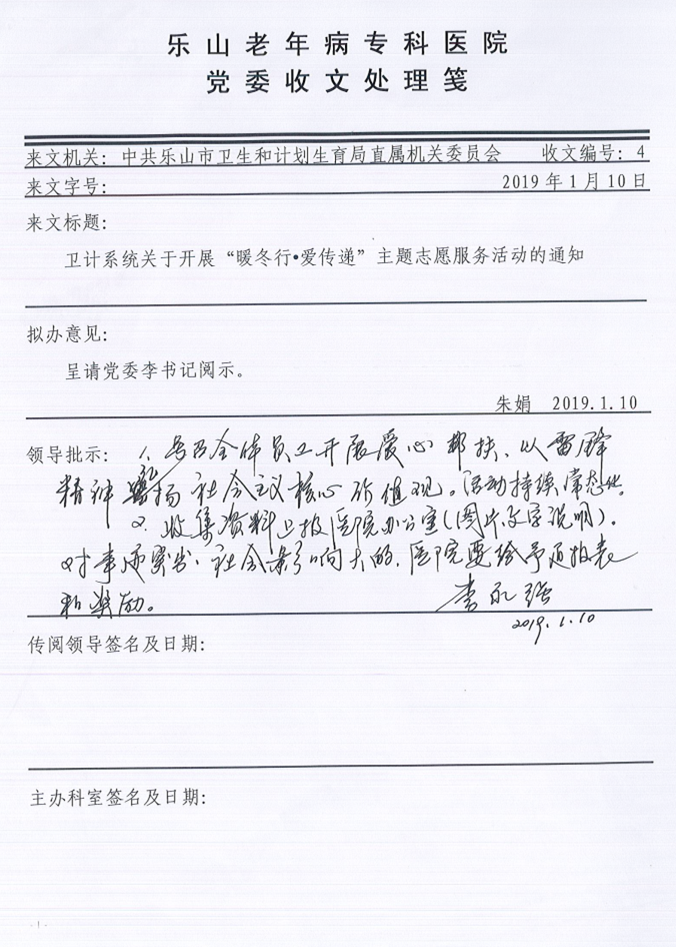 乐山老年病专科医院
党委收文处理笺
来文机关：中共乐山市卫生和计划生育局直属机关委员会 收文编号：4
来文字号： 2019年1月10日
来文标题：
卫计系统关于开展“暖冬行•爱传递”主题志愿服务活动的通知
拟办意见：
呈请党委李书记阅示。
朱娟 2019.1.10
领导批示： 1、号召全体员工开展爱心帮扶、以雷锋
精神 弘扬社会主义核心价值观。活动持续常态化。
2、收集资料上报医院办公室（图片文字说明）。
对事迹突出、社会影响大的、医院要给予通报表
和奖励。
李永强
2019.1.10
传阅领导签名及日期：
主办科室签名及日期：
- 1 -